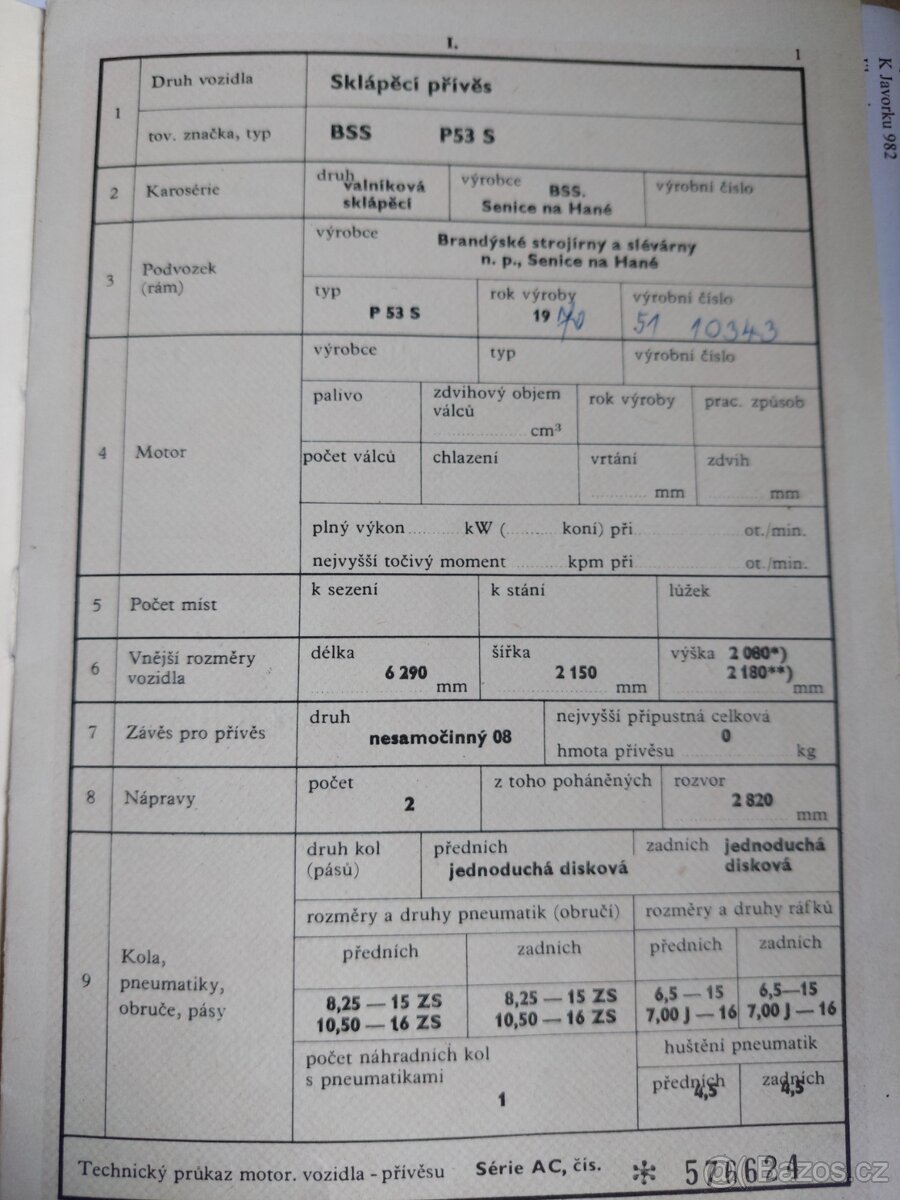 I.
1
K Javorku 982
1
Druh vozidla
Sklápěcí přívěs
tov. značka, typ
BSS P53 S
2
Karosérie
druh
valníková
sklápěcí
výrobce
BSS.
Senice na Hané
výrobní číslo
3
Podvozek
(rám)
výrobce
Brandýské strojírny a slévárny
n. p., Senice na Hané
typ
P 53 S
rok výroby
19 70
výrobní číslo
51 10343
4
Motor
výrobce
typ
výrobní číslo
palivo
zdvihový objem
válců
cm³
rok výroby
prac. způsob
počet válců
chlazení
vrtání
mm
zdvih
mm
plný výkon kW ( koní) při ot./min.
nejvyšší točivý moment kpm při ot./min.
5
Počet míst
k sezení
k stání
lůžek
6
Vnější rozměry
vozidla
délka
6 290
mm
šířka
2 150
mm
výška 2 080*)
2 180**)
mm
7
Závěs pro přívěs
druh
nesamočinný 08
nejvyšší přípustná celková
0
hmota přívěsu kg
8
Nápravy
počet
2
z toho poháněných
rozvor
2 820
mm
9
Kola,
pneumatiky,
obruče, pásy
druh kol
(pásů)
předních
jednoduchá disková
zadních jednoduchá
disková
rozměry a druhy pneumatik (obručí)
rozměry a druhy ráfků
předních
zadních
předních
zadních
8,25 — 15 ZS
10,50 — 16 ZS
8,25 — 15 ZS
10,50 — 16 ZS
6,5 — 15
7,00 J — 16
6,5—15
7,00 J — 16
počet náhradních kol
s pneumatikami
1
huštění pneumatik
předních
4,5
zadních
4,5
Technický průkaz motor. vozidla - přívěsu Série AC, čís. * 576624
Bazos.cz